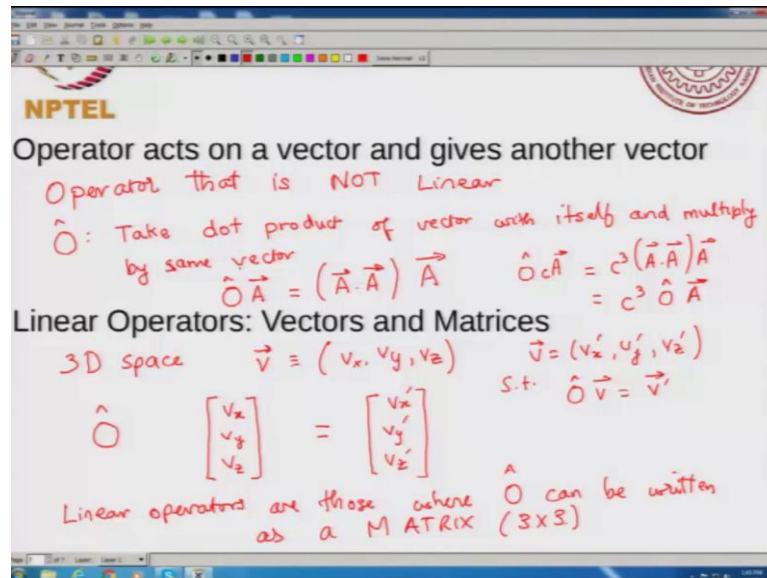 NPTEL
Operator acts on a vector and gives another vector
Operator that is NOT Linear
Ô: Take dot product of vector with itself and multiply
by same vector
Ô A⃗ = (A⃗.A⃗) A⃗
Ô cA⃗ = c³(A⃗.A⃗)A⃗
= c³ Ô A⃗
Linear Operators: Vectors and Matrices
3D space v⃗ ≡ (vx, vy, vz) v⃗ = (vx', vy', vz')
s.t. Ô v⃗ = v⃗'
Ô [vx vy vz] = [vx' vy' vz']
Linear operators are those where Ô can be written
as a MATRIX (3×3)